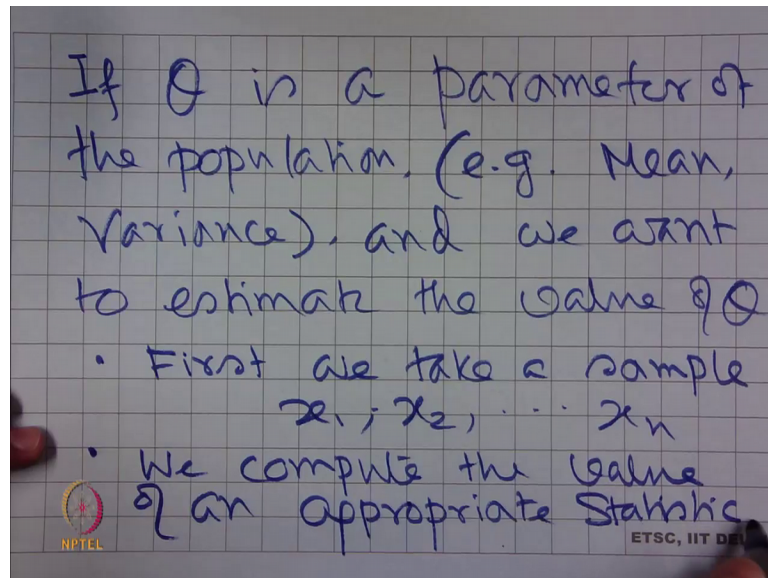 If θ is a parameter of
the population. (e.g. Mean,
Variance). and we want
to estimate the value of θ
• First we take a sample
x₁, x₂, ... xₙ
• We compute the value
of an appropriate Statistic
NPTEL
ETSC, IIT DE